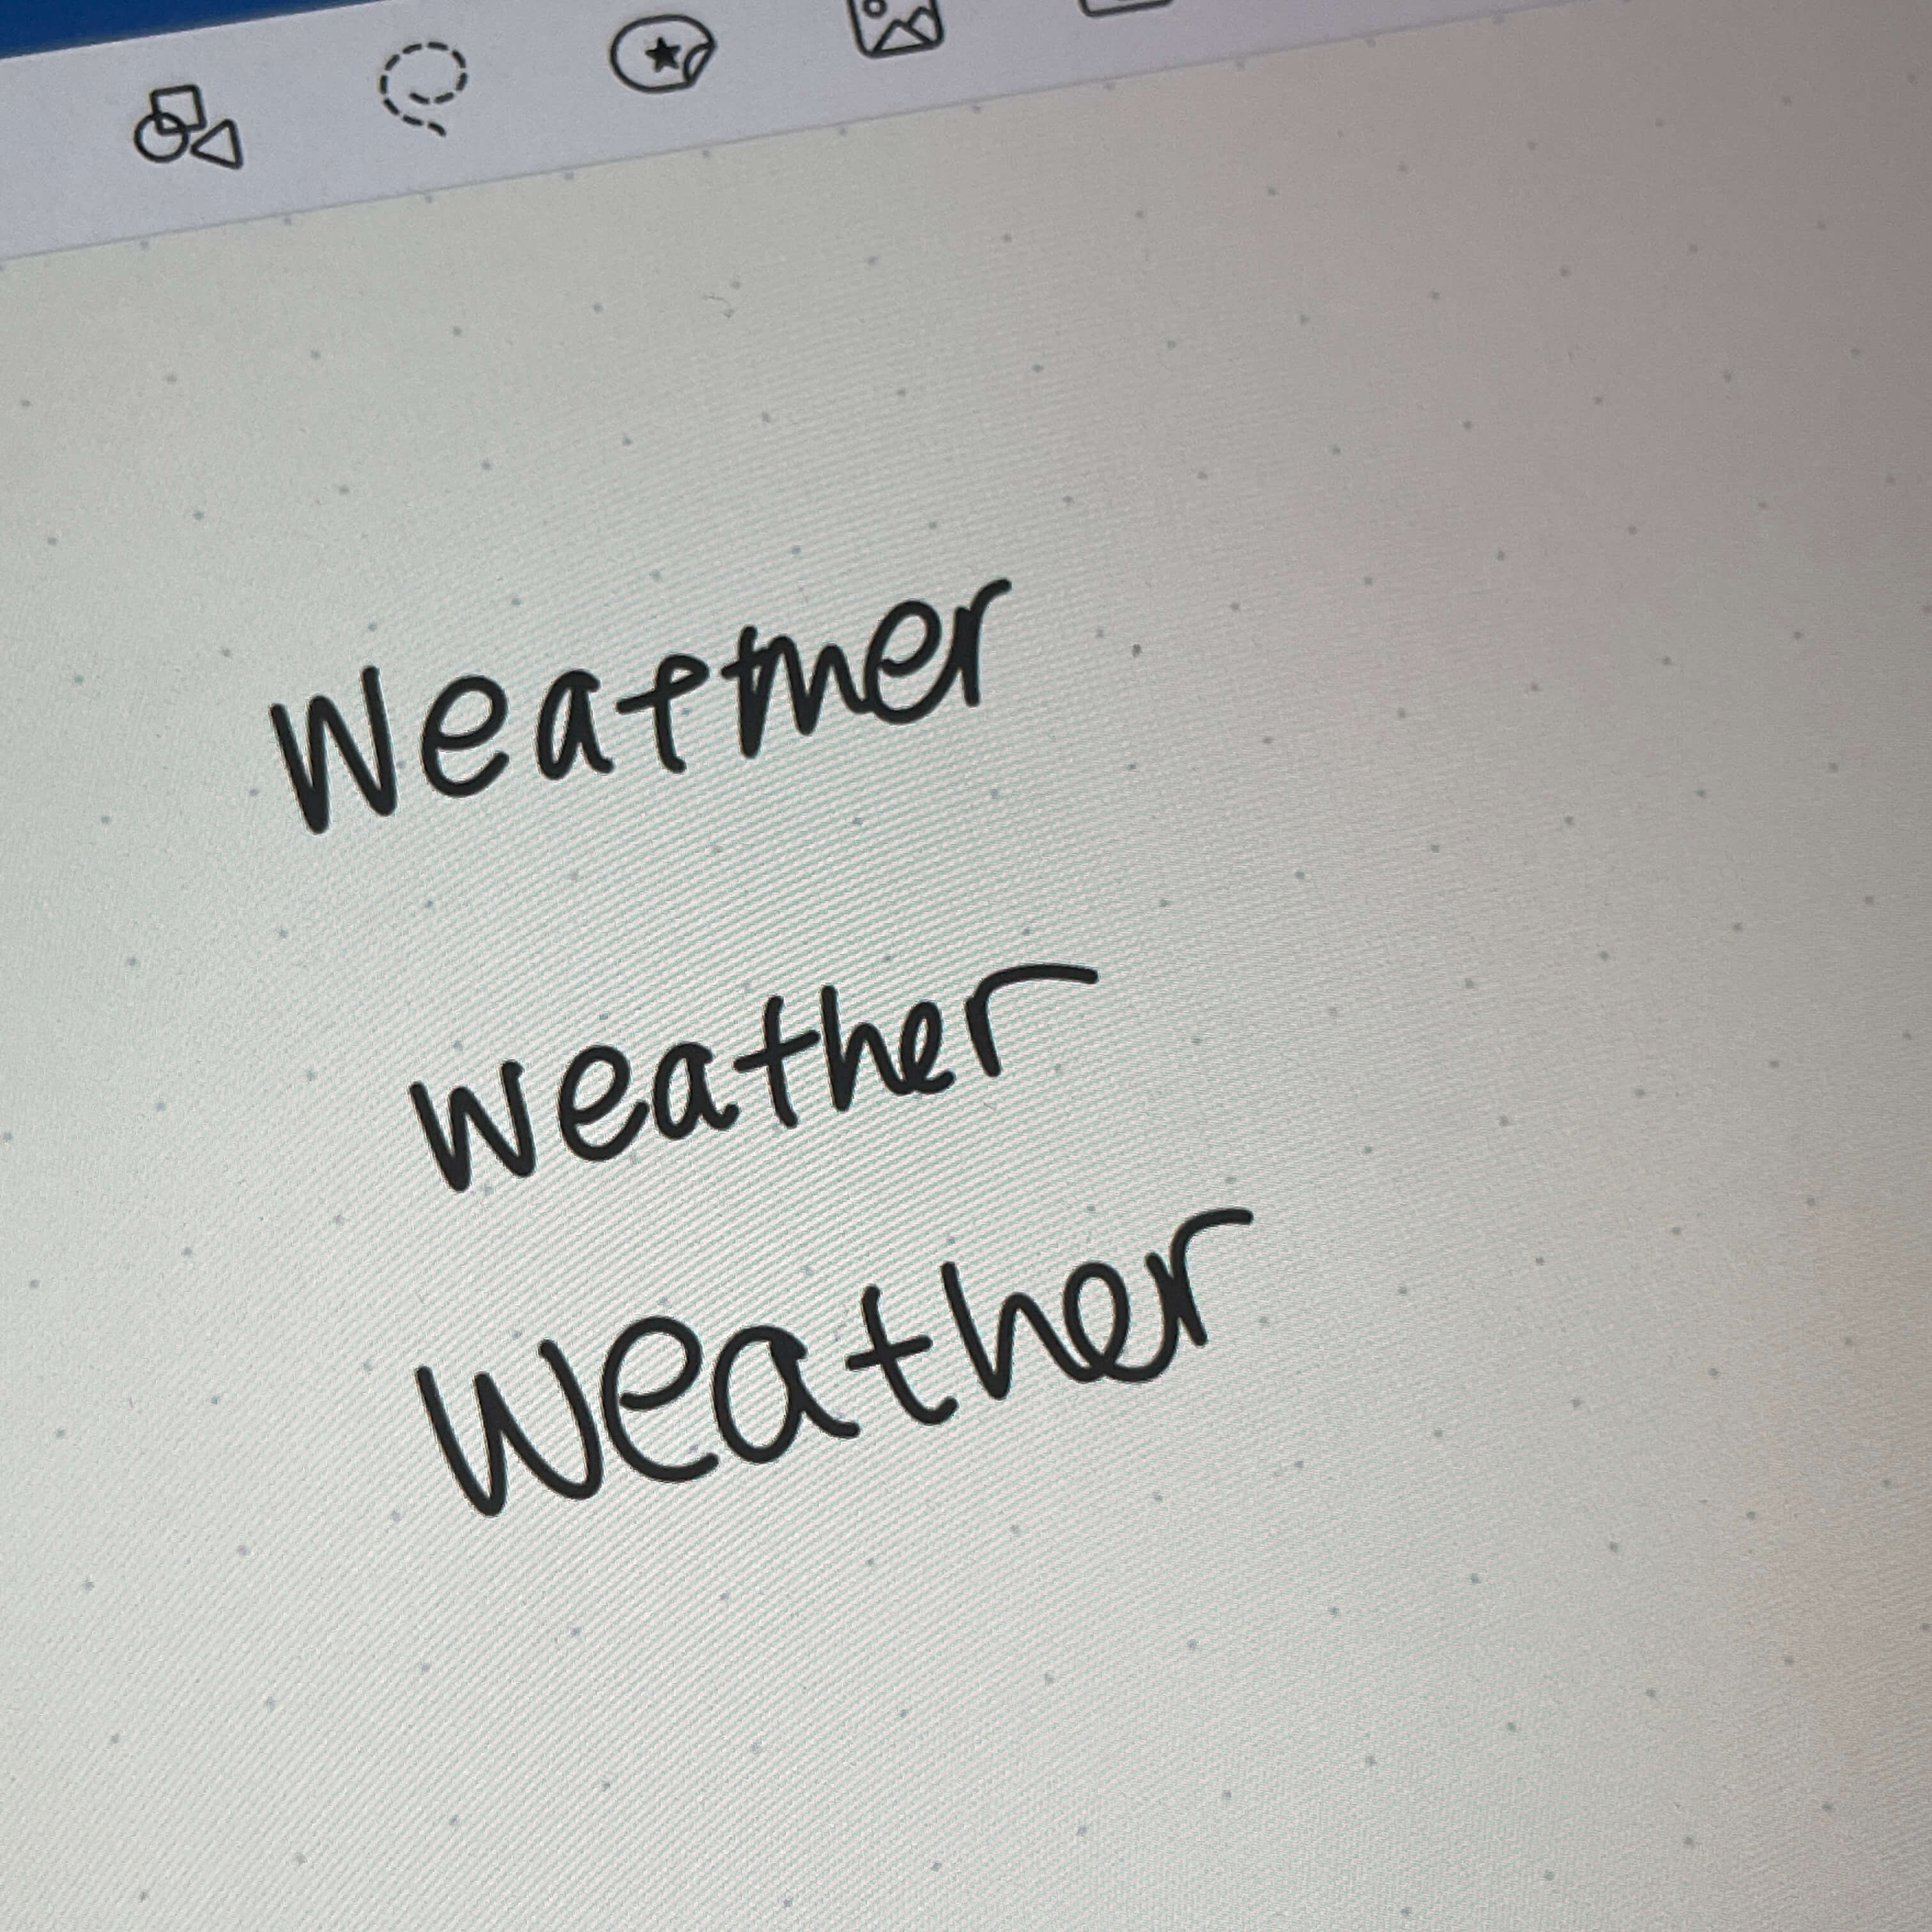 Weatmer
weather
Weather